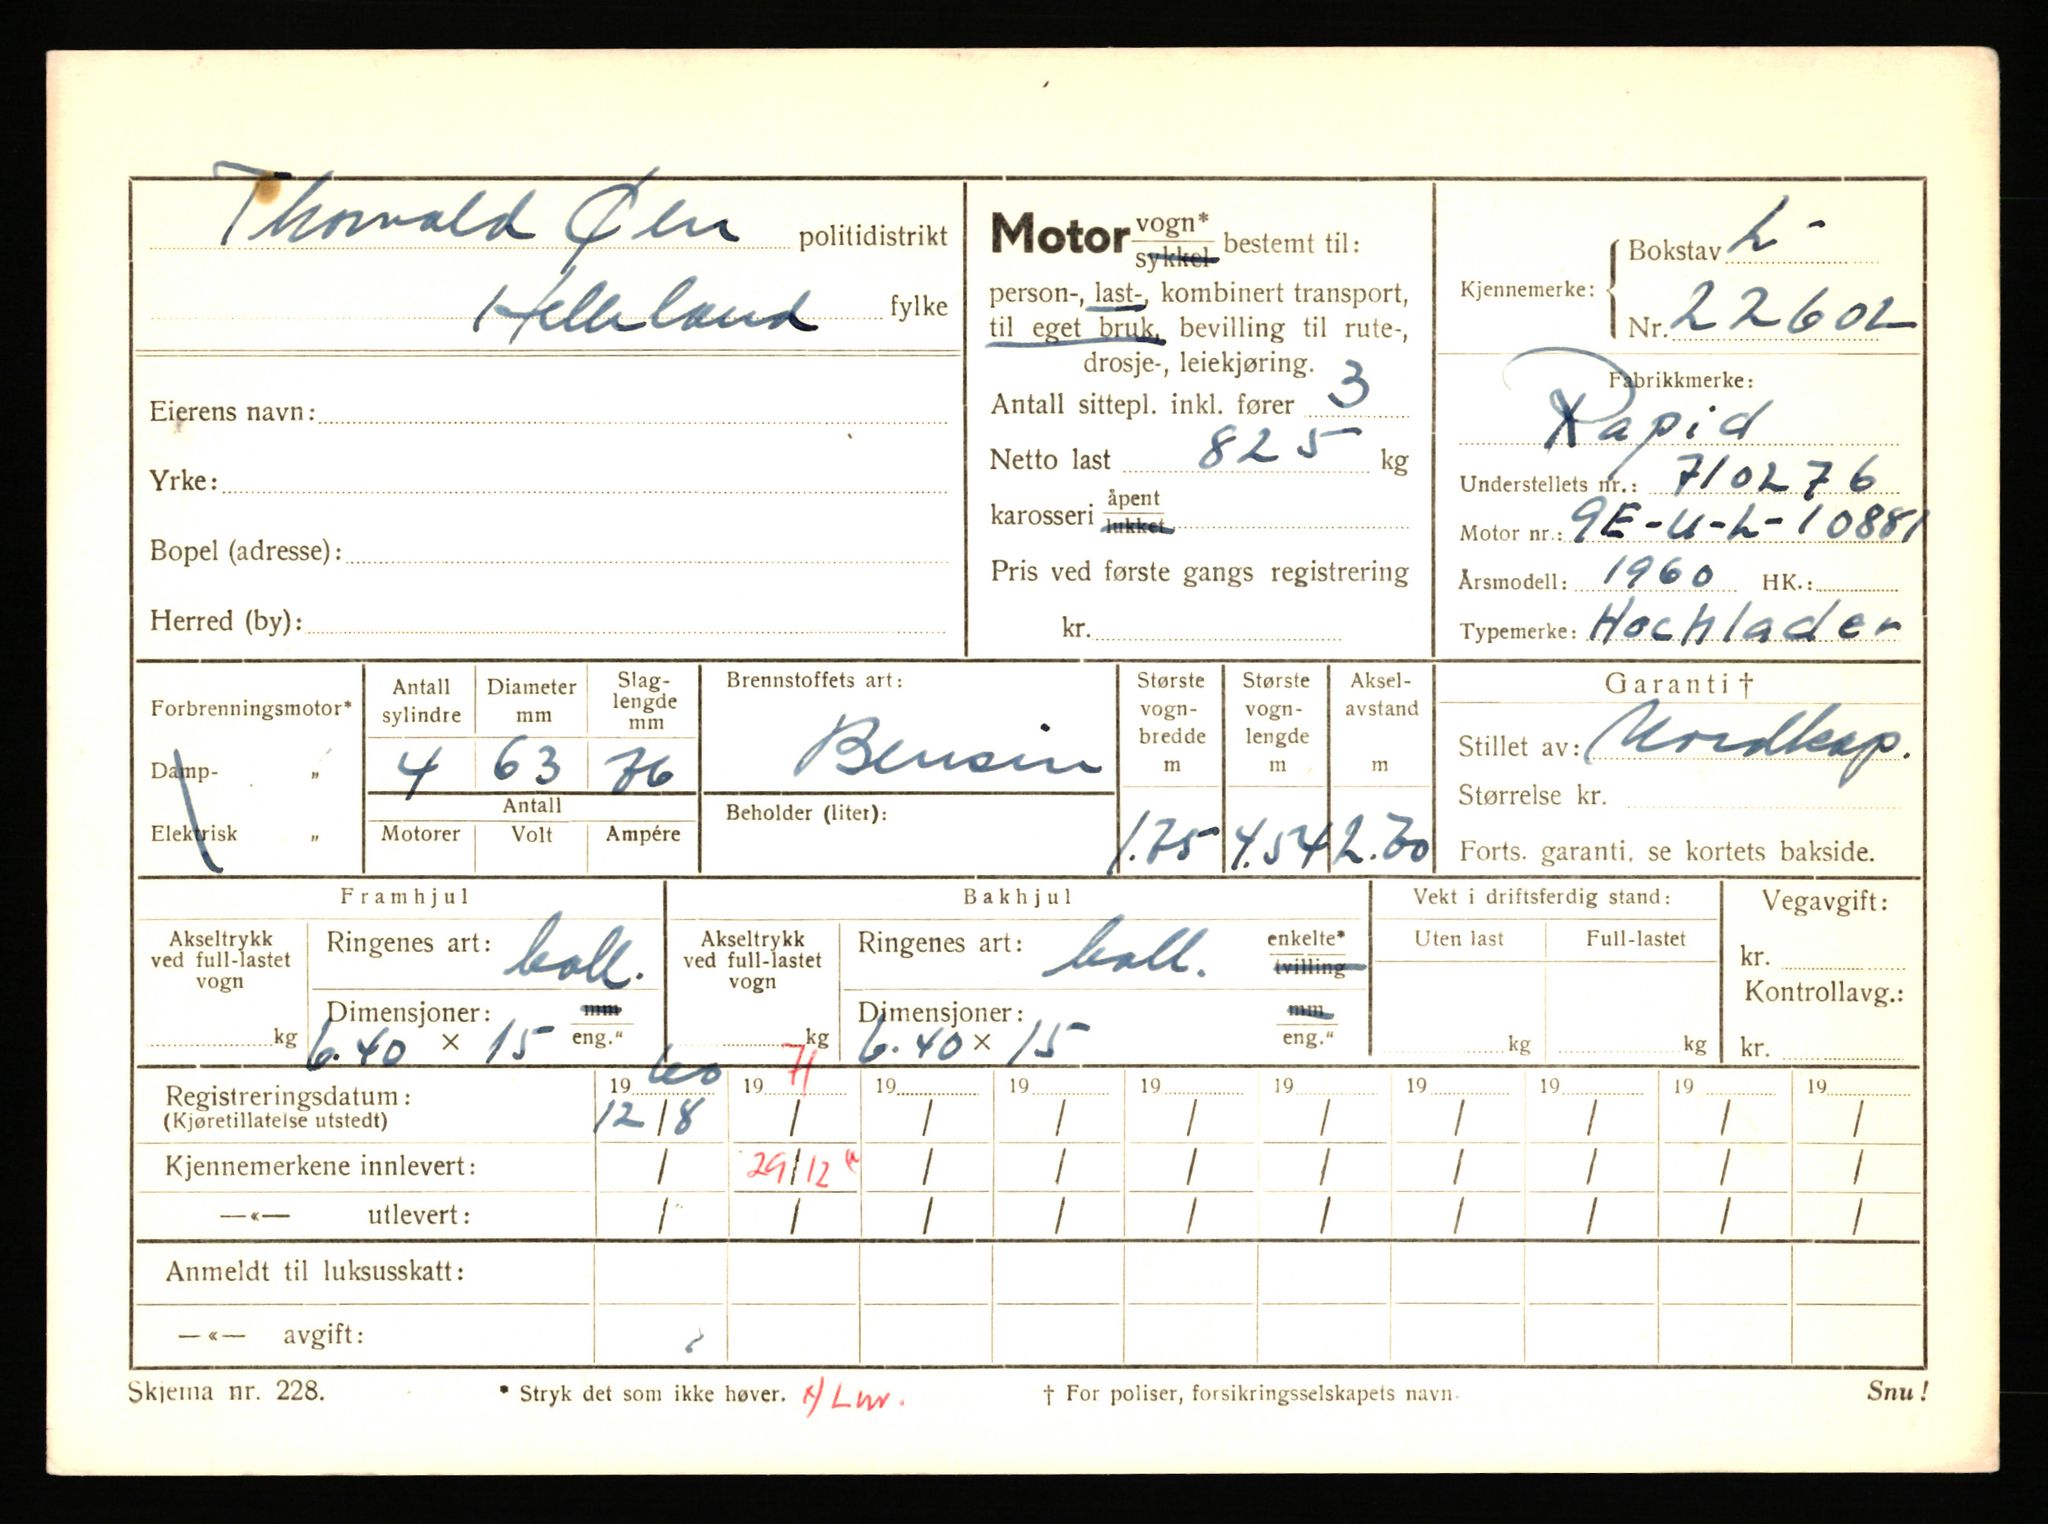 Thorvald Øen politidistrikt
Helleland fylke
Eierens navn:
Yrke:
Bopel (adresse):
Herred (by):
Motor vogn* sykkel bestemt til:
person-, last-, kombinert transport,
til eget bruk, bevilling til rute-,
drosje-, leiekjøring.
Antall sittepl. inkl. fører 3
Netto last 825 kg
karosseri åpent lukket
Pris ved første gangs registrering
kr.
Kjennemerke: Bokstav L-
Nr. 22602
Fabrikkmerke:
Rapid
Understellets nr.: 710276
Motor nr.: 9E-U-L-10881
Årsmodell: 1960 HK.:
Typemerke: Hochlader
Forbrenningsmotor*
Damp- „
Elektrisk „
Antall sylindre
Diameter mm
Slag-lengde mm
4 63 76
Antall
Motorer Volt Ampére
Brennstoffets art:
Bensin
Beholder (liter):
Største vogn-bredde m
Største vogn-lengde m
Aksel-avstand m
1.75 4.54 2.70
Garanti †
Stillet av: Nordkap.
Størrelse kr.
Forts. garanti, se kortets bakside.
Framhjul
Akseltrykk ved full-lastet vogn
kg
Ringenes art: ball.
Dimensjoner: mm eng."
6.40 × 15
Bakhjul
Akseltrykk ved full-lastet vogn
kg
Ringenes art: ball. enkelte* tvilling
Dimensjoner: mm eng."
6.40 × 15
Vekt i driftsferdig stand:
Uten last Full-lastet
kg kg
Vegavgift:
kr.
Kontrollavg.:
kr.
Registreringsdatum: 19 60 19 71 19 19 19 19 19 19 19 19
(Kjøretillatelse utstedt) 12/8 / / / / / / / / /
Kjennemerkene innlevert: / 29/12 / / / / / / / /
—«— utlevert: / / / / / / / / / /
Anmeldt til luksusskatt:
—«— avgift:
Skjema nr. 228.
* Stryk det som ikke høver.
† For poliser, forsikringsselskapets navn.
Snu!